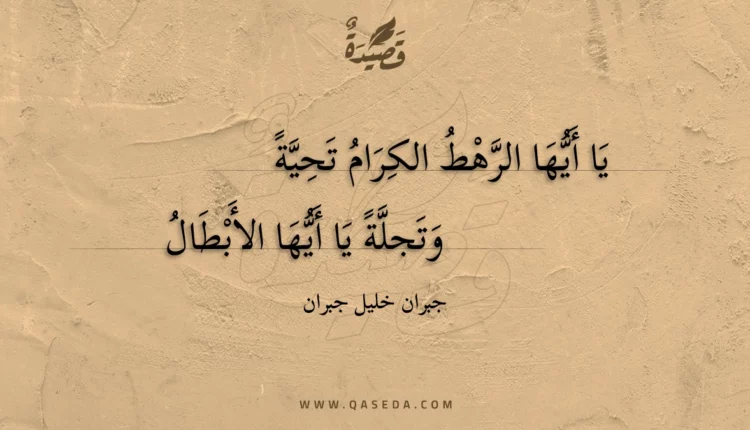 قَصِيْدَةٌ
يَا أَيُّهَا الرَّهْطُ الكِرَامُ تَحِيَّةً
وَتَجلَّةً يَا أَيُّهَا الأَبْطَالُ
جبران خليل جبران
WWW.QASEDA.COM